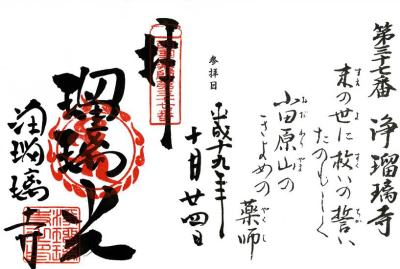 第三十七番 浄瑠璃寺
末の世に救いの誓い
すえ よ すく ちか
たのもしく
小田原山の
おだわらやま
きよめの薬師
参拝日
平成十九年
十月廿四日
拝
瑠璃光
浄瑠璃寺